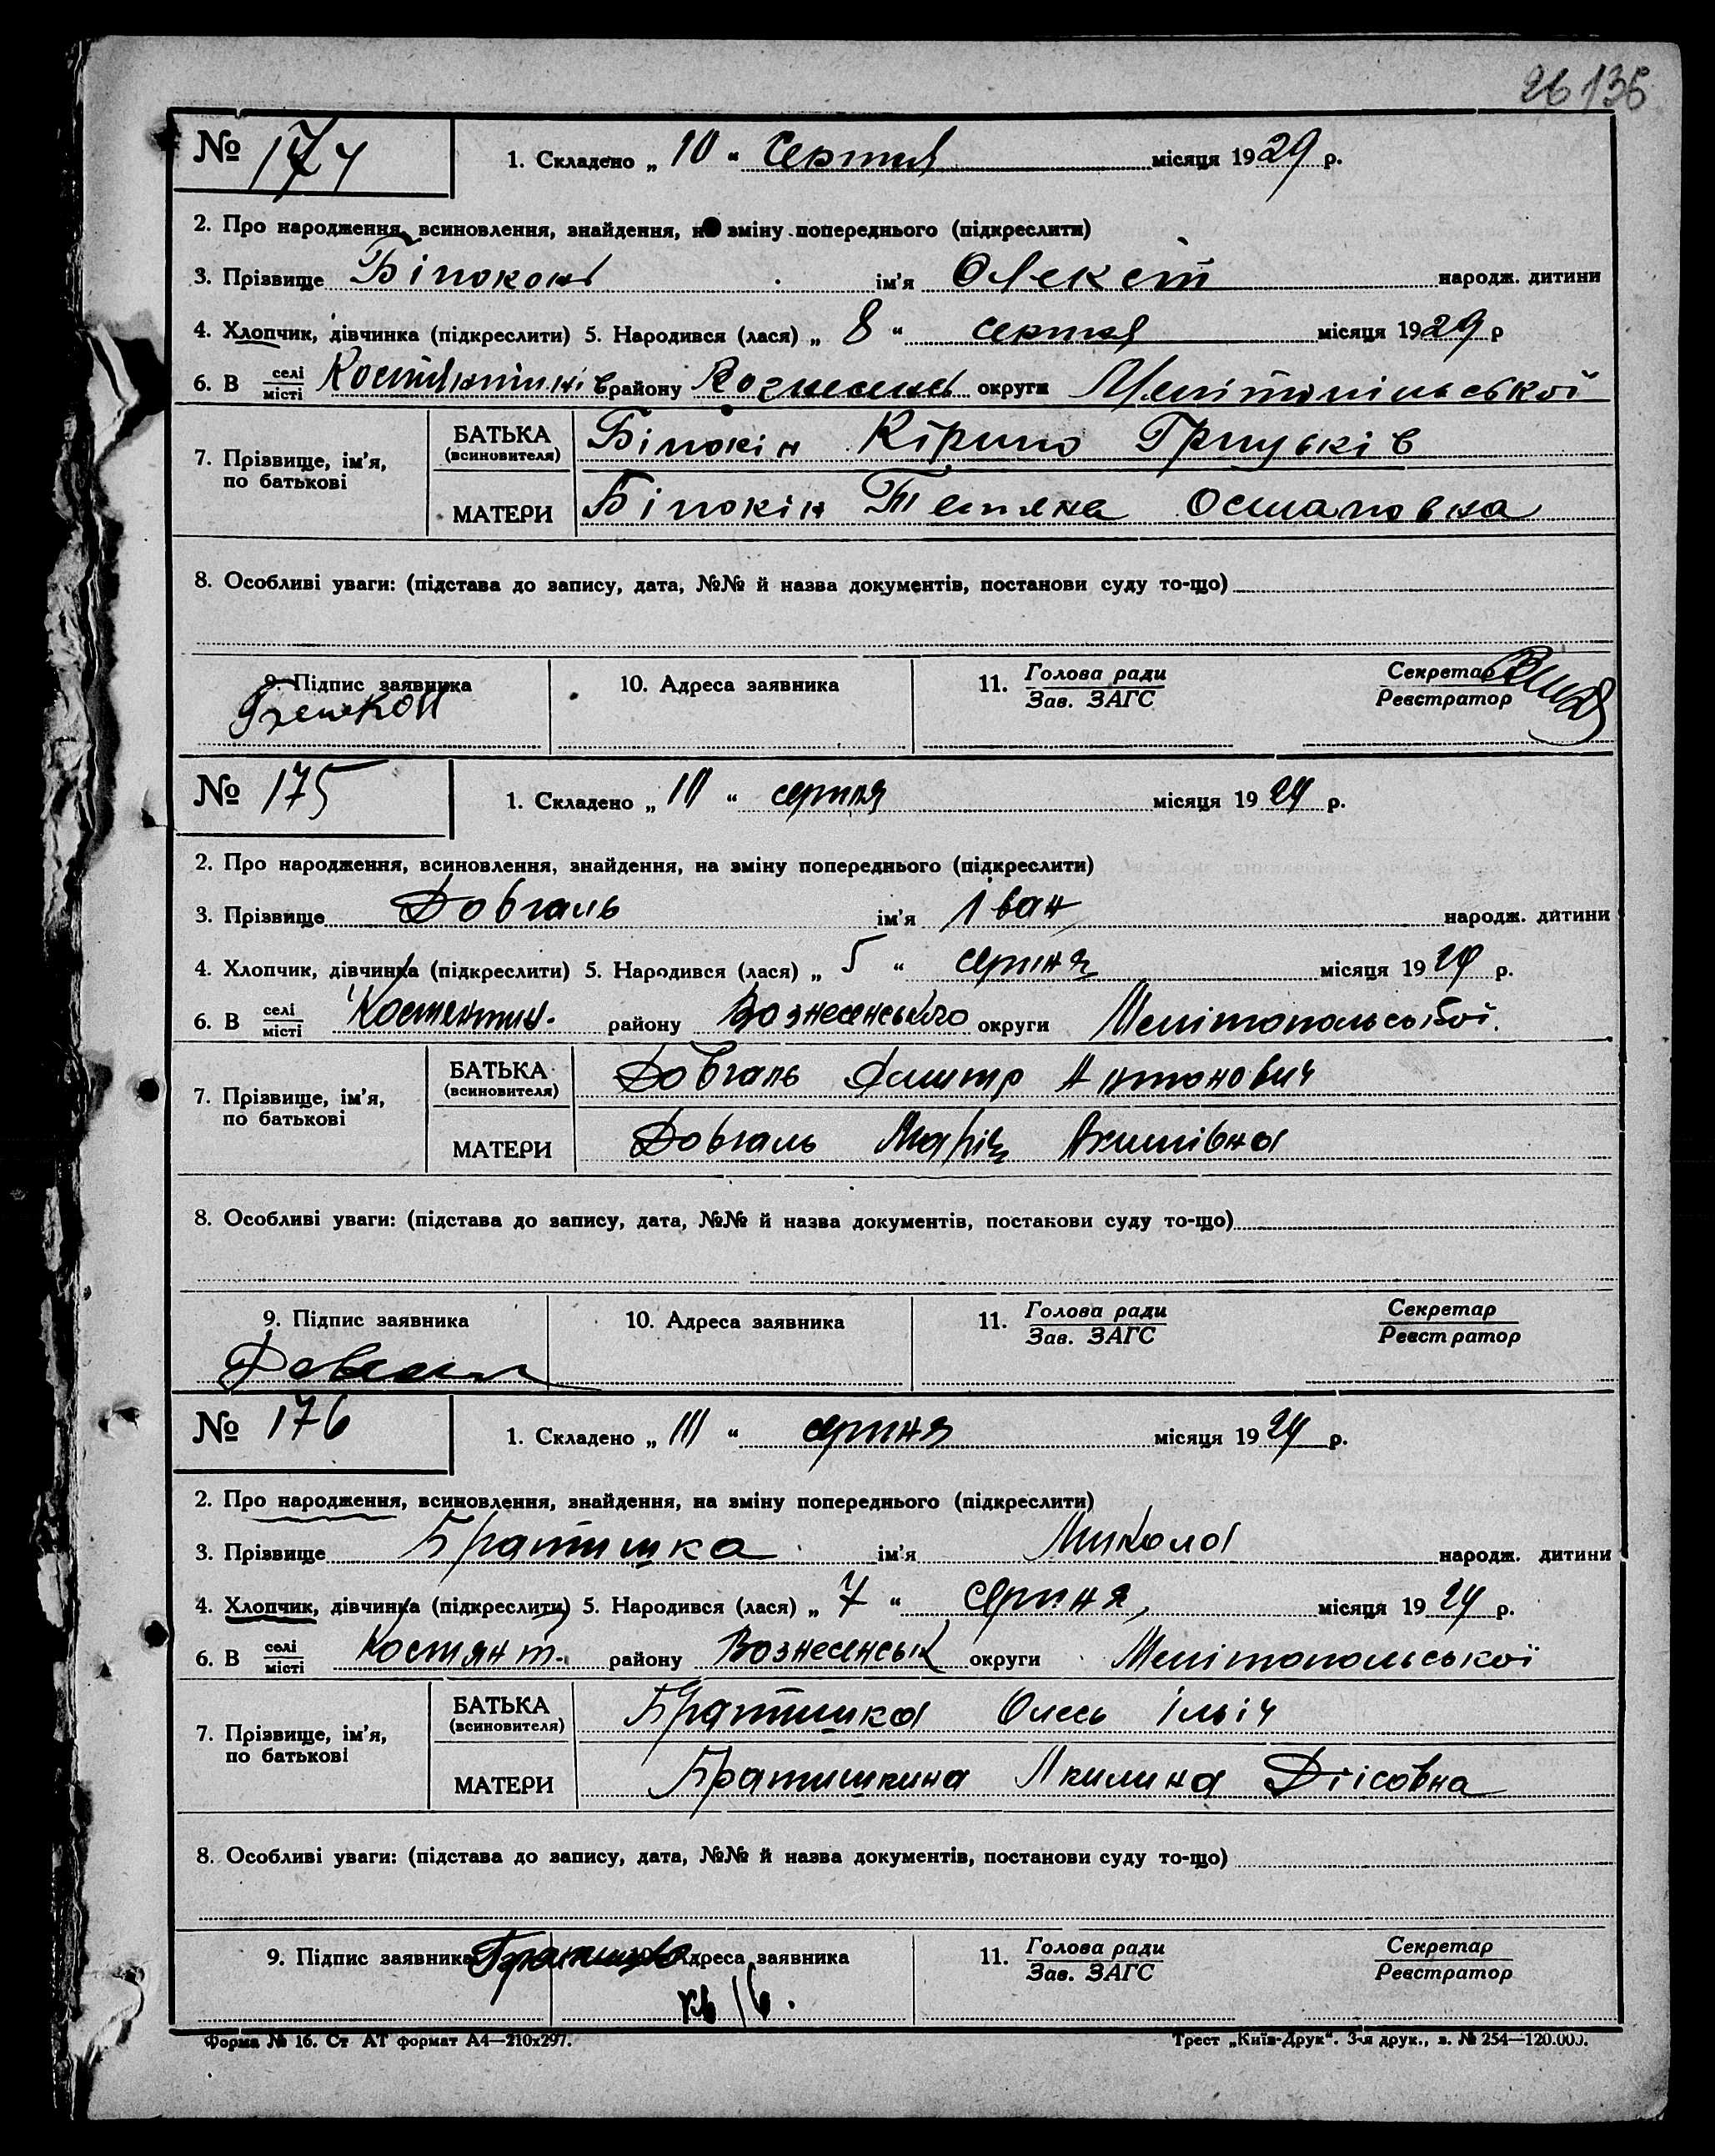 26 136
№ 174
1. Складено „ 10 “ Серпня місяця 1929 р.
2. Про народження, всиновлення, знайдення, на зміну попереднього (підкреслити)
3. Прізвище Білоконь ім'я Олексій народж. дитини
4. Хлопчик, дівчинка (підкреслити) 5. Народився (лася) „ 8 “ серпня місяця 1929 р
6. В селі/місті району округи Мелітопільської
7. Прізвище, ім'я, по батькові
БАТЬКА (всиновителя) Білокін Кірило
МАТЕРИ Білокін Тетяна Остаповна
8. Особливі уваги: (підстава до запису, дата, №№ й назва документів, постанови суду то-що)
9. Підпис заявника 10. Адреса заявника 11. Голова ради/Зав. ЗАГС Секретар/Реєстратор
№ 175
1. Складено „ 10 “ серпня місяця 1929 р.
2. Про народження, всиновлення, знайдення, на зміну попереднього (підкреслити)
3. Прізвище Довгаль ім'я Іван народж. дитини
4. Хлопчик, дівчинка (підкреслити) 5. Народився (лася) „ 5 “ серпня місяця 1929 р.
6. В селі/місті Костентин. району Вознесенського округи Мелітопольської.
7. Прізвище, ім'я, по батькові
БАТЬКА (всиновителя) Довгаль Дмитро Антонович
МАТЕРИ Довгаль Марія Якимівна
8. Особливі уваги: (підстава до запису, дата, №№ й назва документів, постанови суду то-що)
9. Підпис заявника 10. Адреса заявника 11. Голова ради/Зав. ЗАГС Секретар/Реєстратор
№ 176
1. Складено „ 10 “ серпня місяця 1929 р.
2. Про народження, всиновлення, знайдення, на зміну попереднього (підкреслити)
3. Прізвище Братишка ім'я Микола народж. дитини
4. Хлопчик, дівчинка (підкреслити) 5. Народився (лася) „ 7 “ серпня, місяця 1929 р.
6. В селі/місті Костянт. району Вознесенськ округи Мелітопольської
7. Прізвище, ім'я, по батькові
БАТЬКА (всиновителя) Братишка Олесь Ільіч
МАТЕРИ Братишкина Якилина
8. Особливі уваги: (підстава до запису, дата, №№ й назва документів, постанови суду то-що)
9. Підпис заявника Братишка Адреса заявника 11. Голова ради/Зав. ЗАГС Секретар/Реєстратор
Форма № 16. Ст АТ формат А4—210х297.
Трест „Київ-Друк“. 3-я друк., з. № 254—120.000.